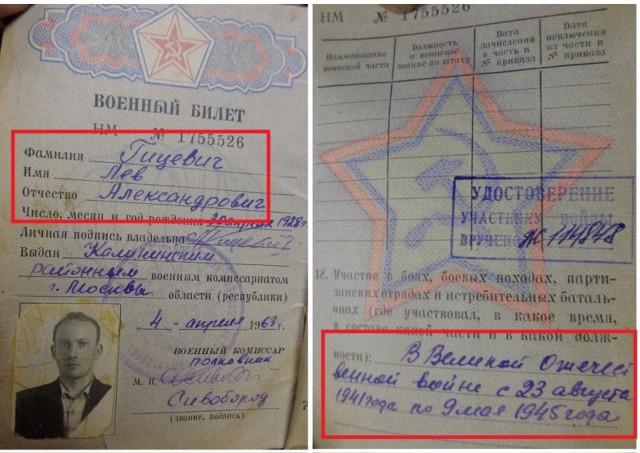 ВОЕННЫЙ БИЛЕТ
НМ № 1755526
Фамилия Гицевич
Имя Лев
Отчество Александрович
Число, месяц и год рождения 20 апреля 1928г.
Личная подпись владельца
Выдан Калининским
районным военным комиссариатом
г. Москвы области (республики)
„4" апреля 1963 г.
ВОЕННЫЙ КОМИССАР
полковник
М. П.
Сивобород
(звание, подпись)
НМ № 1755526
Наименование воинской части
Должность и воинское звание по штату
Дата зачисления в часть и № приказа
Дата исключения из части и № приказа
УДОСТОВЕРЕНИЕ
УЧАСТНИКУ ВОЙНЫ
ВРУЧЕНО Ж 114848
18. Участие в боях, боевых походах, парти-
занских отрядах и истребительных баталь-
онах (где участвовал, в какое время,
в составе какой части и в какой долж-
ности): В Великой Отечест
венной войне с 23 августа
1941года по 9 мая 1945 года